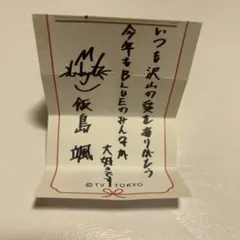 いつも沢山の愛をありがとう
今年もBLUEのみんなが
大好きです
飯島颯
©TV TOKYO